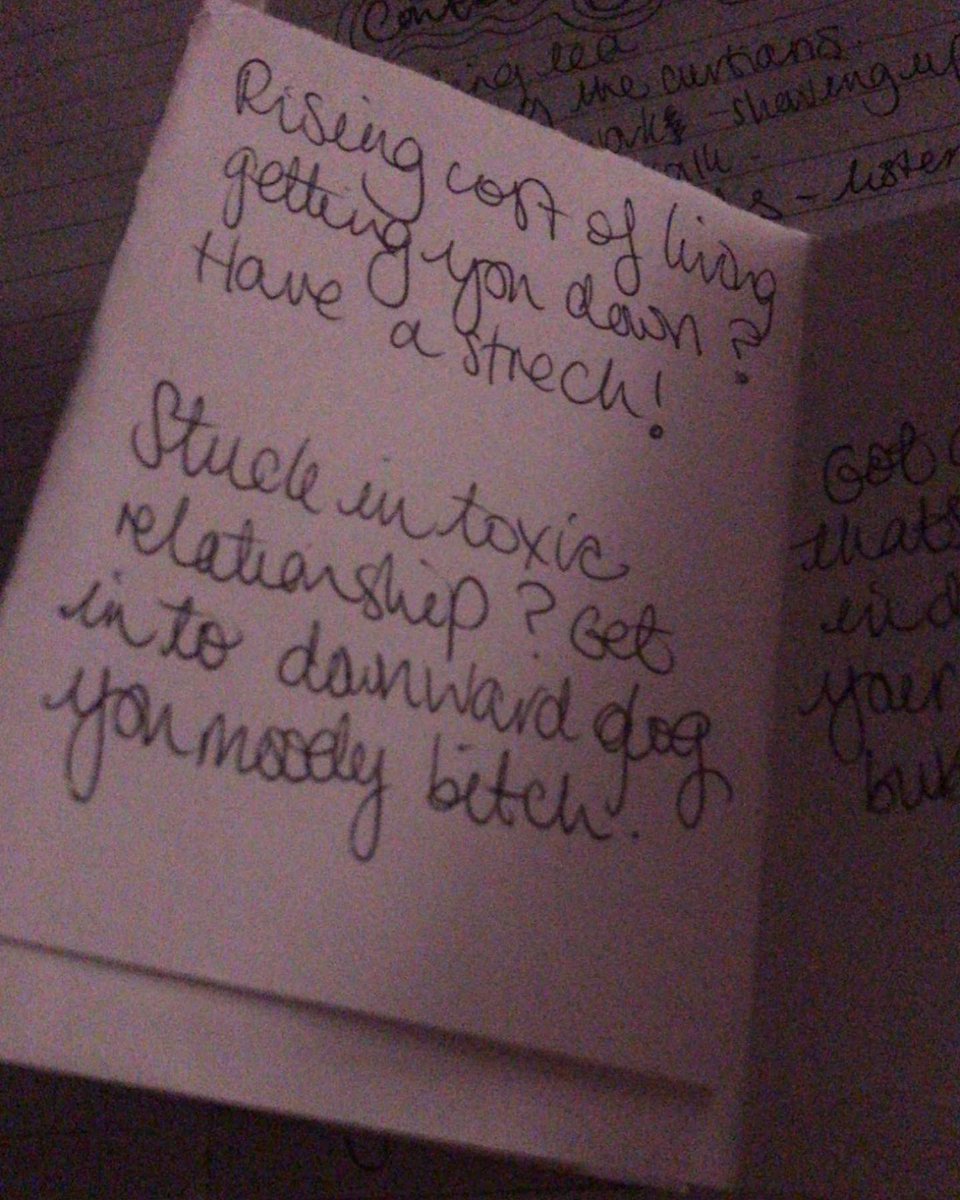 the curtians.
- shaving
- listen
Rising cost of living
getting you down?
Have a strech!
Stuck in toxic
relationship? Get
in to downward dog
you moody bitch.
Got
thats